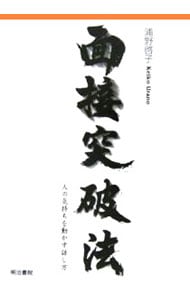 浦野啓子 Keiko Urano
面接突破法
人の気持ちを動かす話し方
明治書院